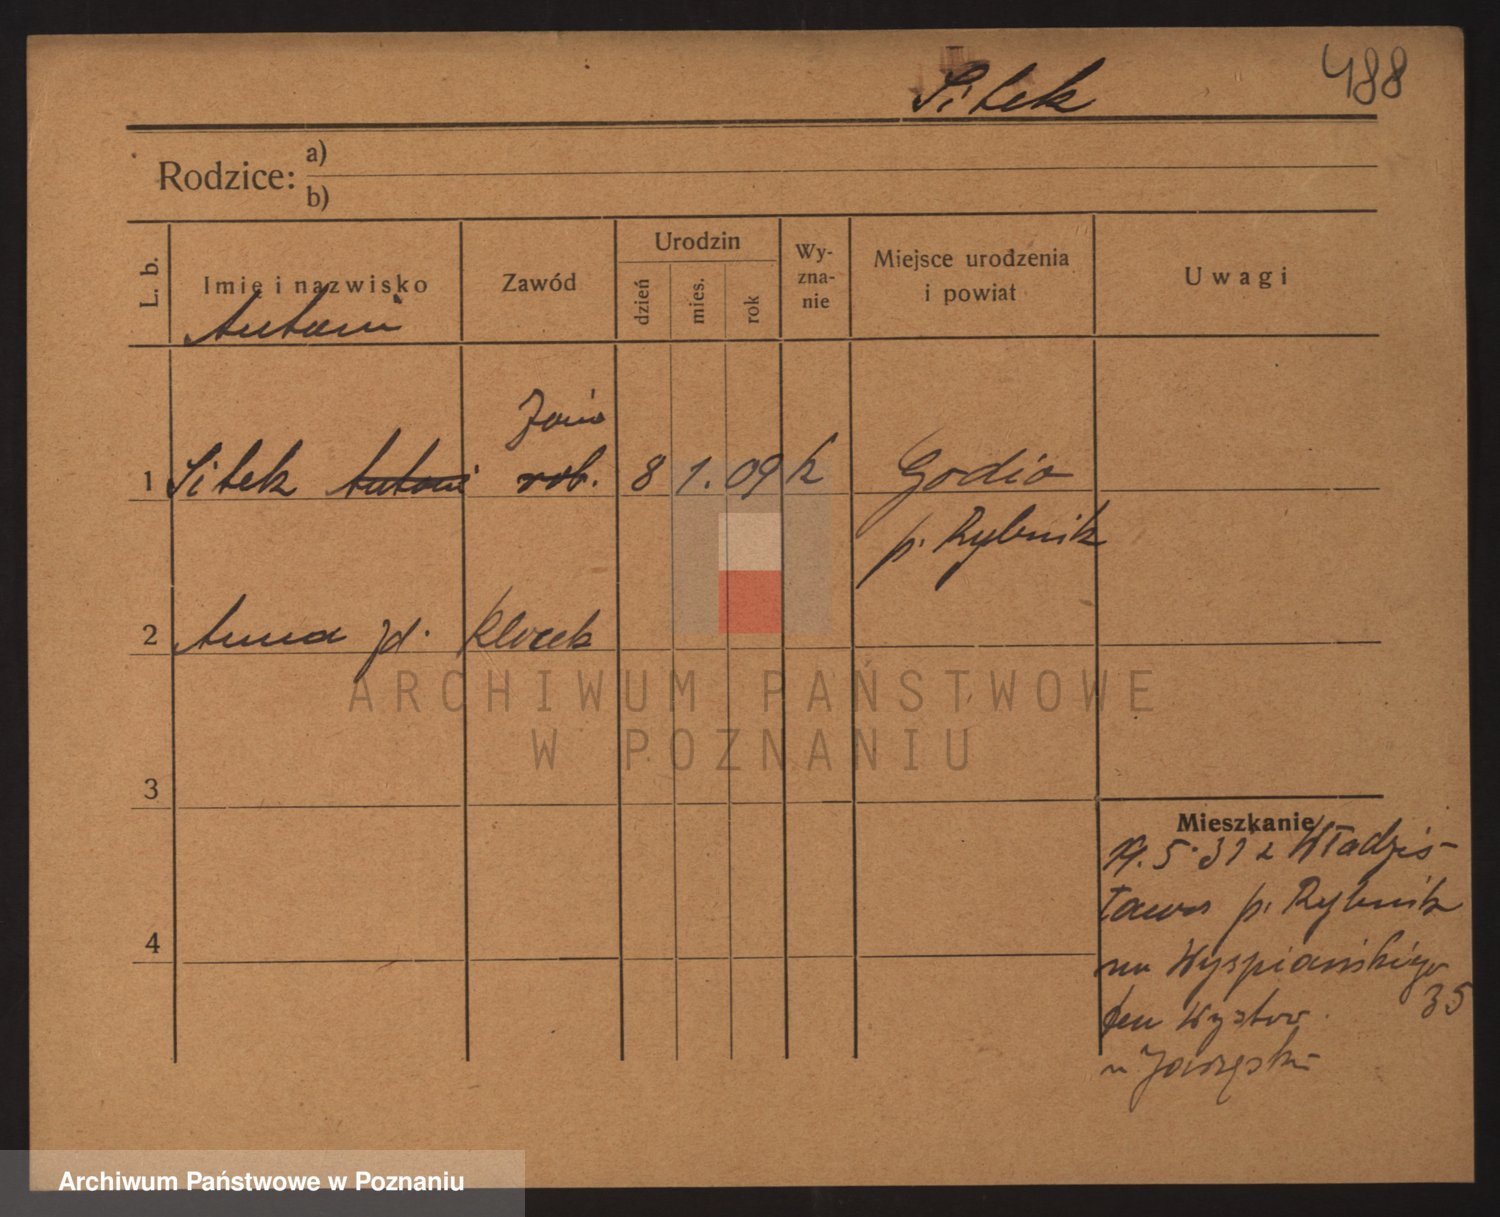 Sitek
488
Rodzice: a)
b)
L. b.
Imię i nazwisko
Zawód
Urodzin
dzień
mies.
rok
Wy-
zna-
nie
Miejsce urodzenia
i powiat
Uwagi
Antoni
1 Sitek Antoni rob. 8 1. 09 k
p. Rybnik
2 Anna zd. Klocek
ARCHIWUM PAŃSTWOWE
W POZNANIU
3
Mieszkanie
5 31 z Władzis-
ława p. Rybnik
na Wyspiańskiego
35
4
Archiwum Państwowe w Poznaniu